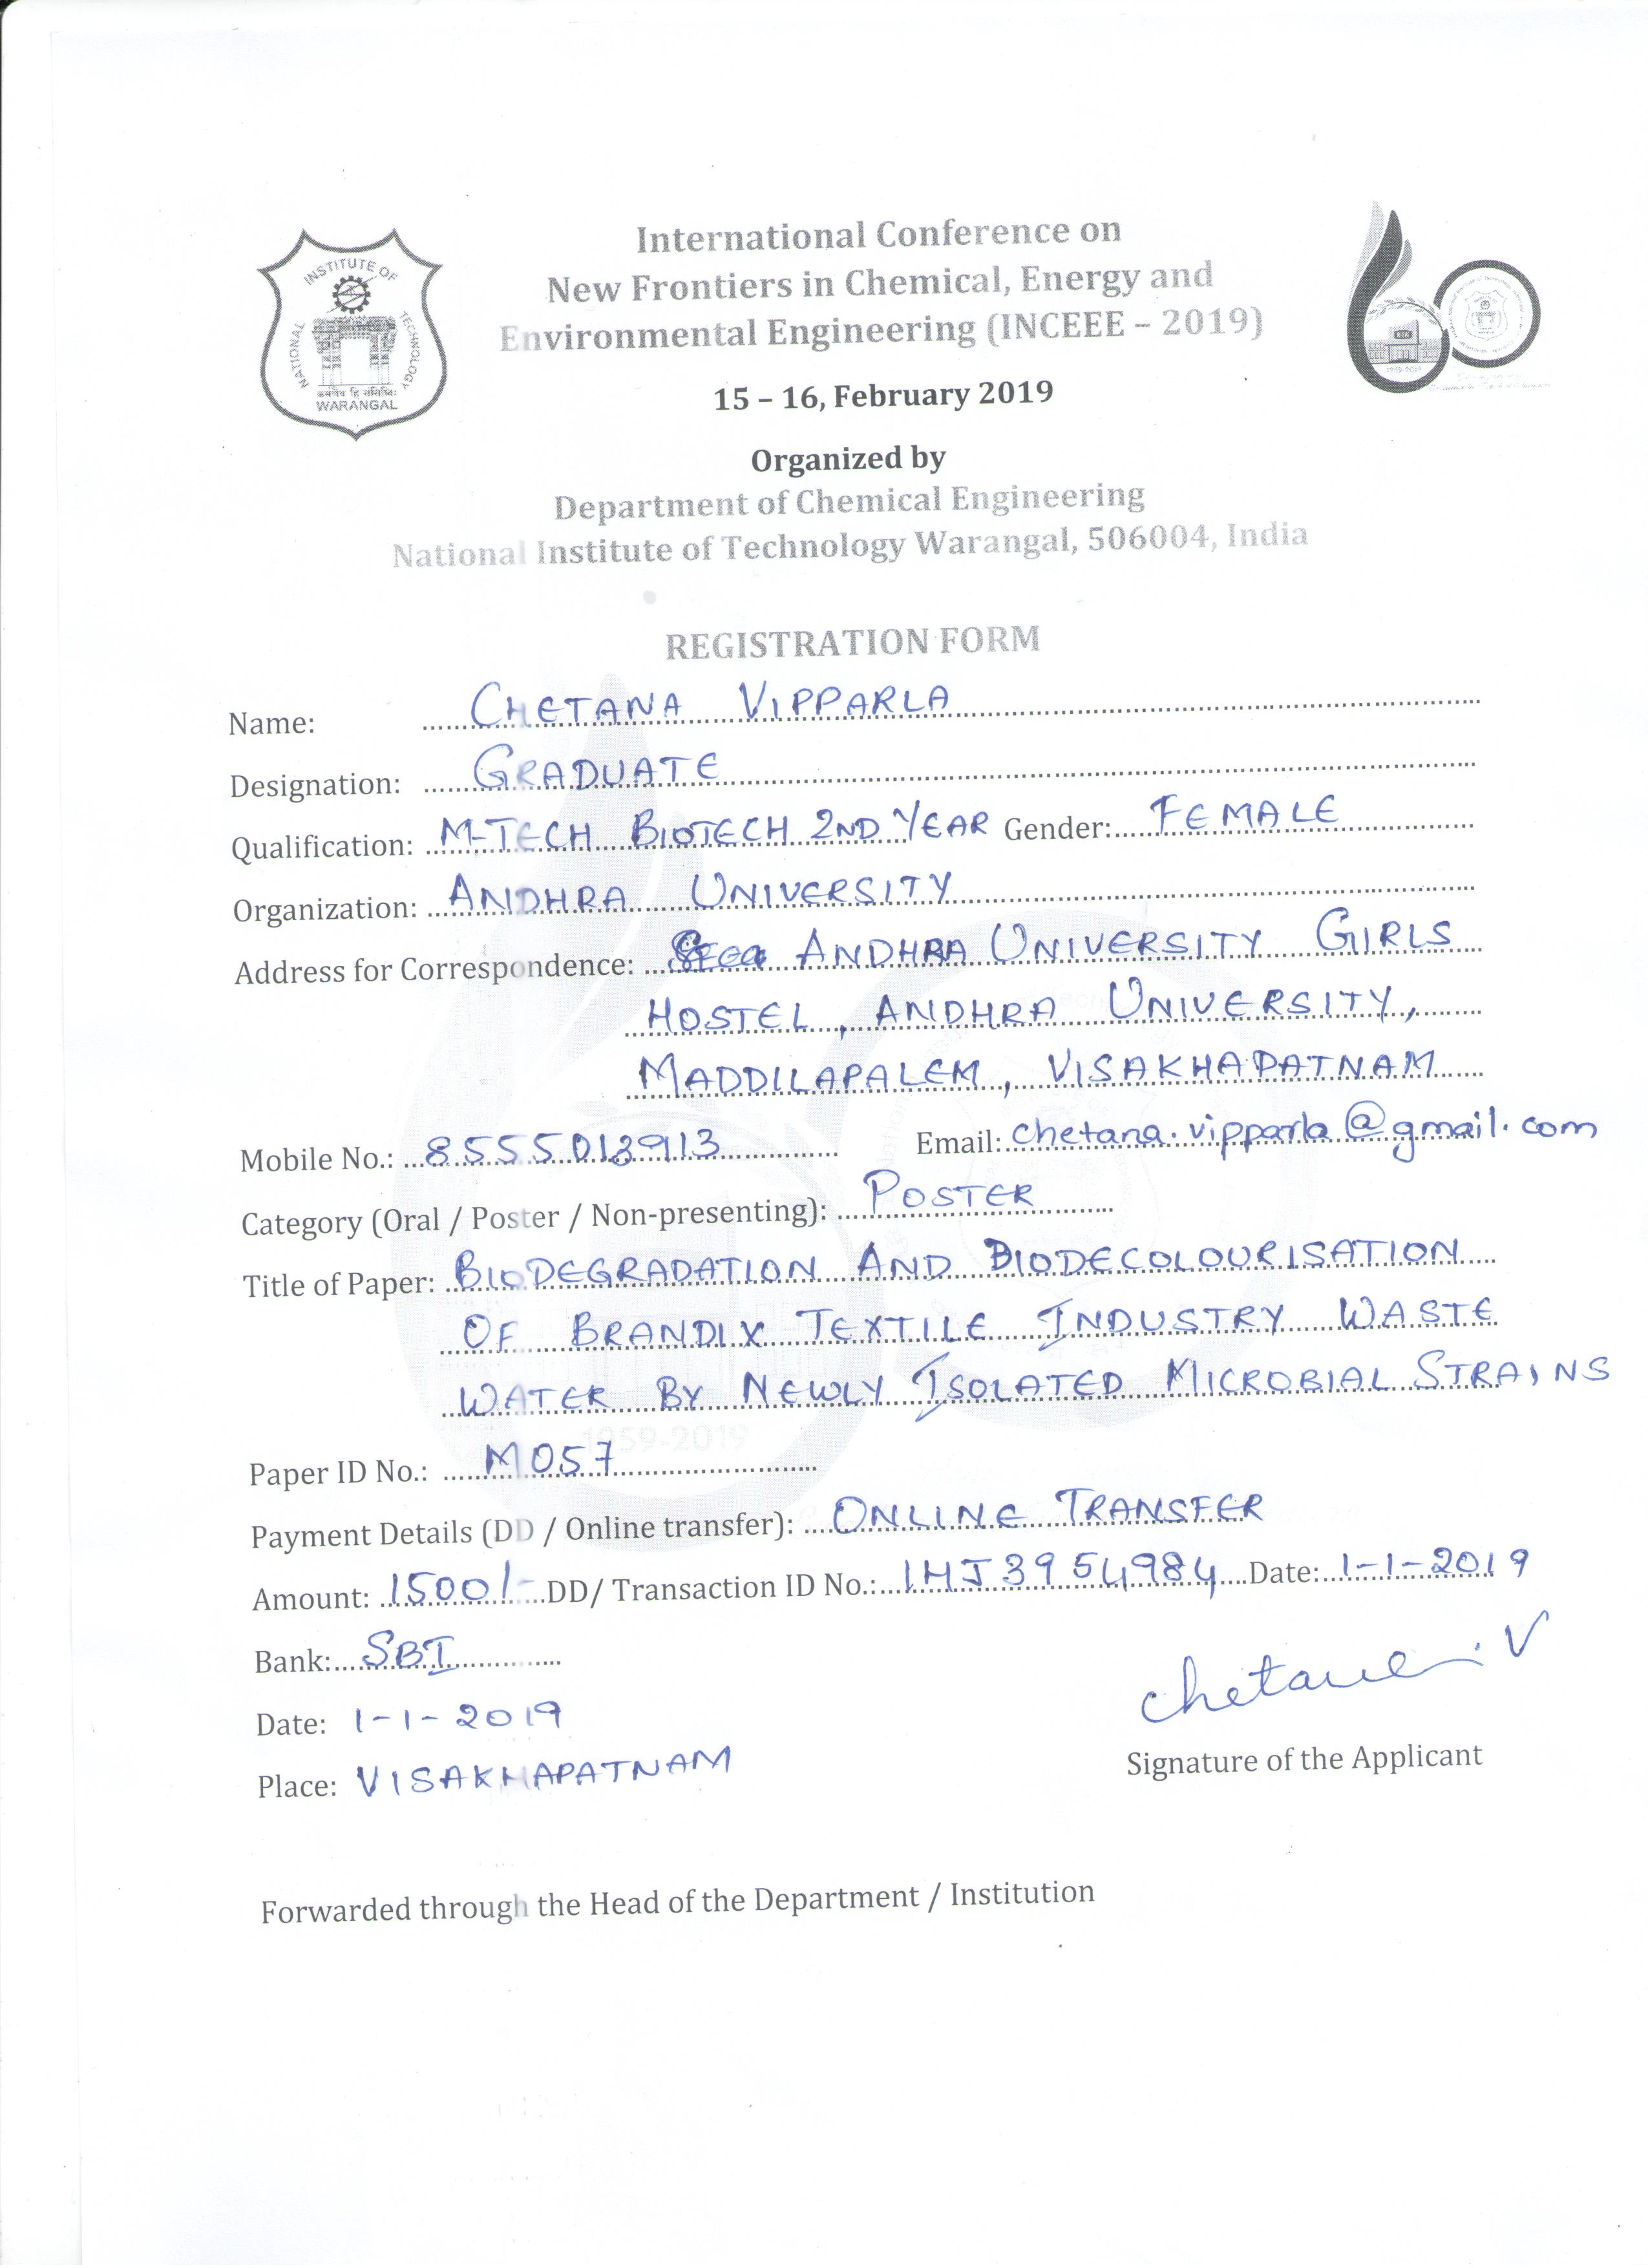 International Conference on
New Frontiers in Chemical, Energy and
Environmental Engineering (INCEEE – 2019)
15 – 16, February 2019
Organized by
Department of Chemical Engineering
National Institute of Technology Warangal, 506004, India
NATIONAL INSTITUTE OF TECHNOLOGY
WARANGAL
1959-2019
REGISTRATION FORM
Name: CHETANA VIPPARLA
Designation: GRADUATE
Qualification: M-TECH BIOTECH 2ND YEAR Gender: FEMALE
Organization: ANDHRA UNIVERSITY
Address for Correspondence: ANDHRA UNIVERSITY GIRLS
HOSTEL, ANDHRA UNIVERSITY,
MADDILAPALEM, VISAKHAPATNAM
Mobile No.: Email: chetana.vipparla@gmail.com
Category (Oral / Poster / Non-presenting): POSTER
Title of Paper: BIODEGRADATION AND BIODECOLOURISATION
OF BRANDIX TEXTILE INDUSTRY WASTE
WATER BY NEWLY ISOLATED MICROBIAL STRAINS
1959-2019
Paper ID No.: M057
Payment Details (DD / Online transfer): ONLINE TRANSFER
Amount: 1500/- DD/ Transaction ID No.: IHJ3954984 Date: 1-1-2019
Bank: SBI
Date: 1-1-2019
chetana. V
Place: VISAKHAPATNAM
Signature of the Applicant
Forwarded through the Head of the Department / Institution